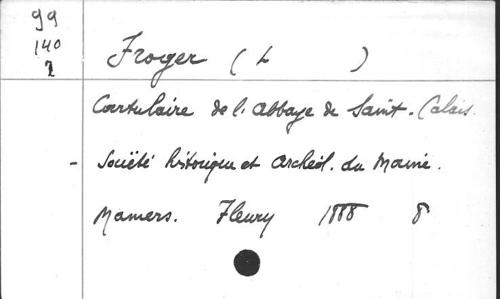 99
140
2
Froger ( L )
Cartulaire de l'abbaye de Saint-Calais.
- Société historique et Archéol. du Maine.
Mamers. Fleury 1888 8